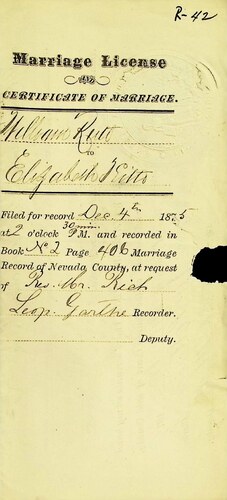 R-42
Marriage License
AND
CERTIFICATE OF MARRIAGE.
William
TO
Elizabeth
Filed for record Dec. 4th 1875
at 2 o'clock 30 min. M. and recorded in
Book No 2 Page 406 Marriage
Record of Nevada County, at request
of Rev. Mr. Rich
Leop. Garthe Recorder.
Deputy.